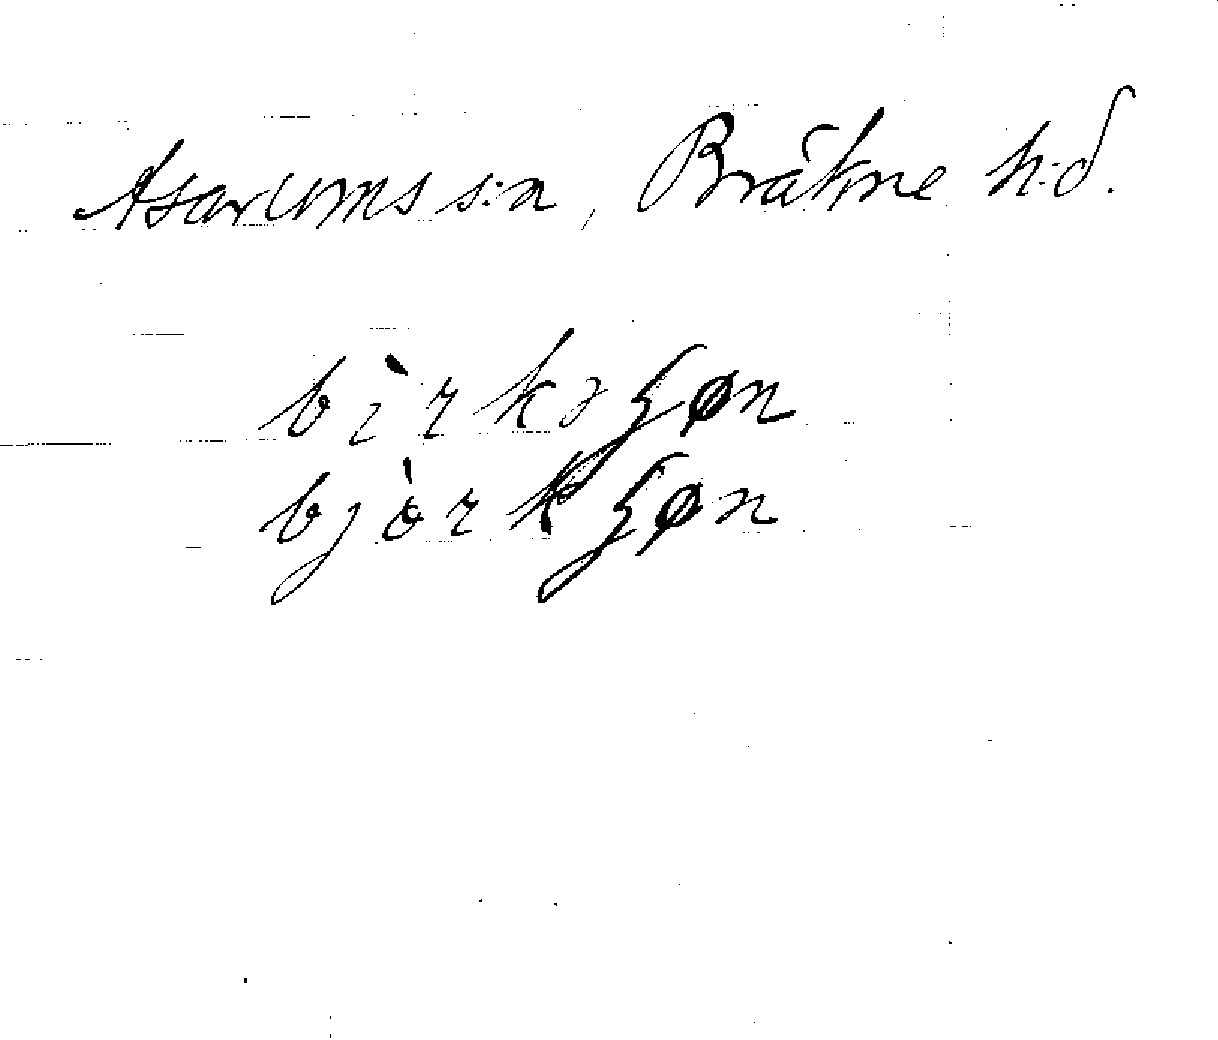 Asarums s:n, Bräkne h:d.
bìrkəʂøn
bjòrkʂøn